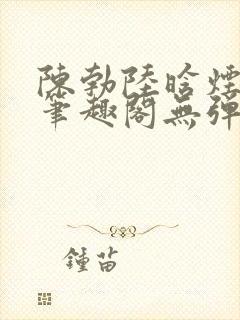 陳勃陸晗煙
筆趣閣無彈
鍾苗